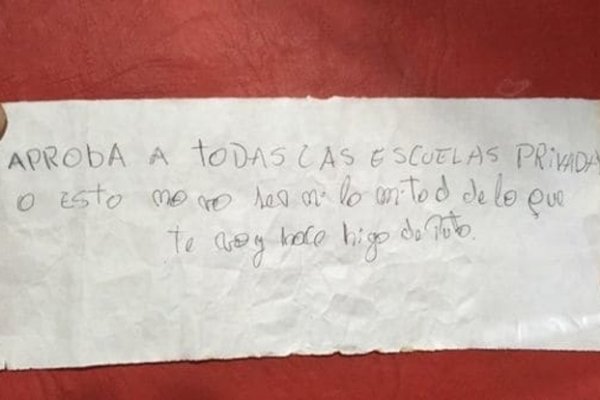 APROBA A TODAS LAS ESCUELAS PRIVADA
O ESTO no va ser ni la mitad de lo que
te voy hace higo de Puto.